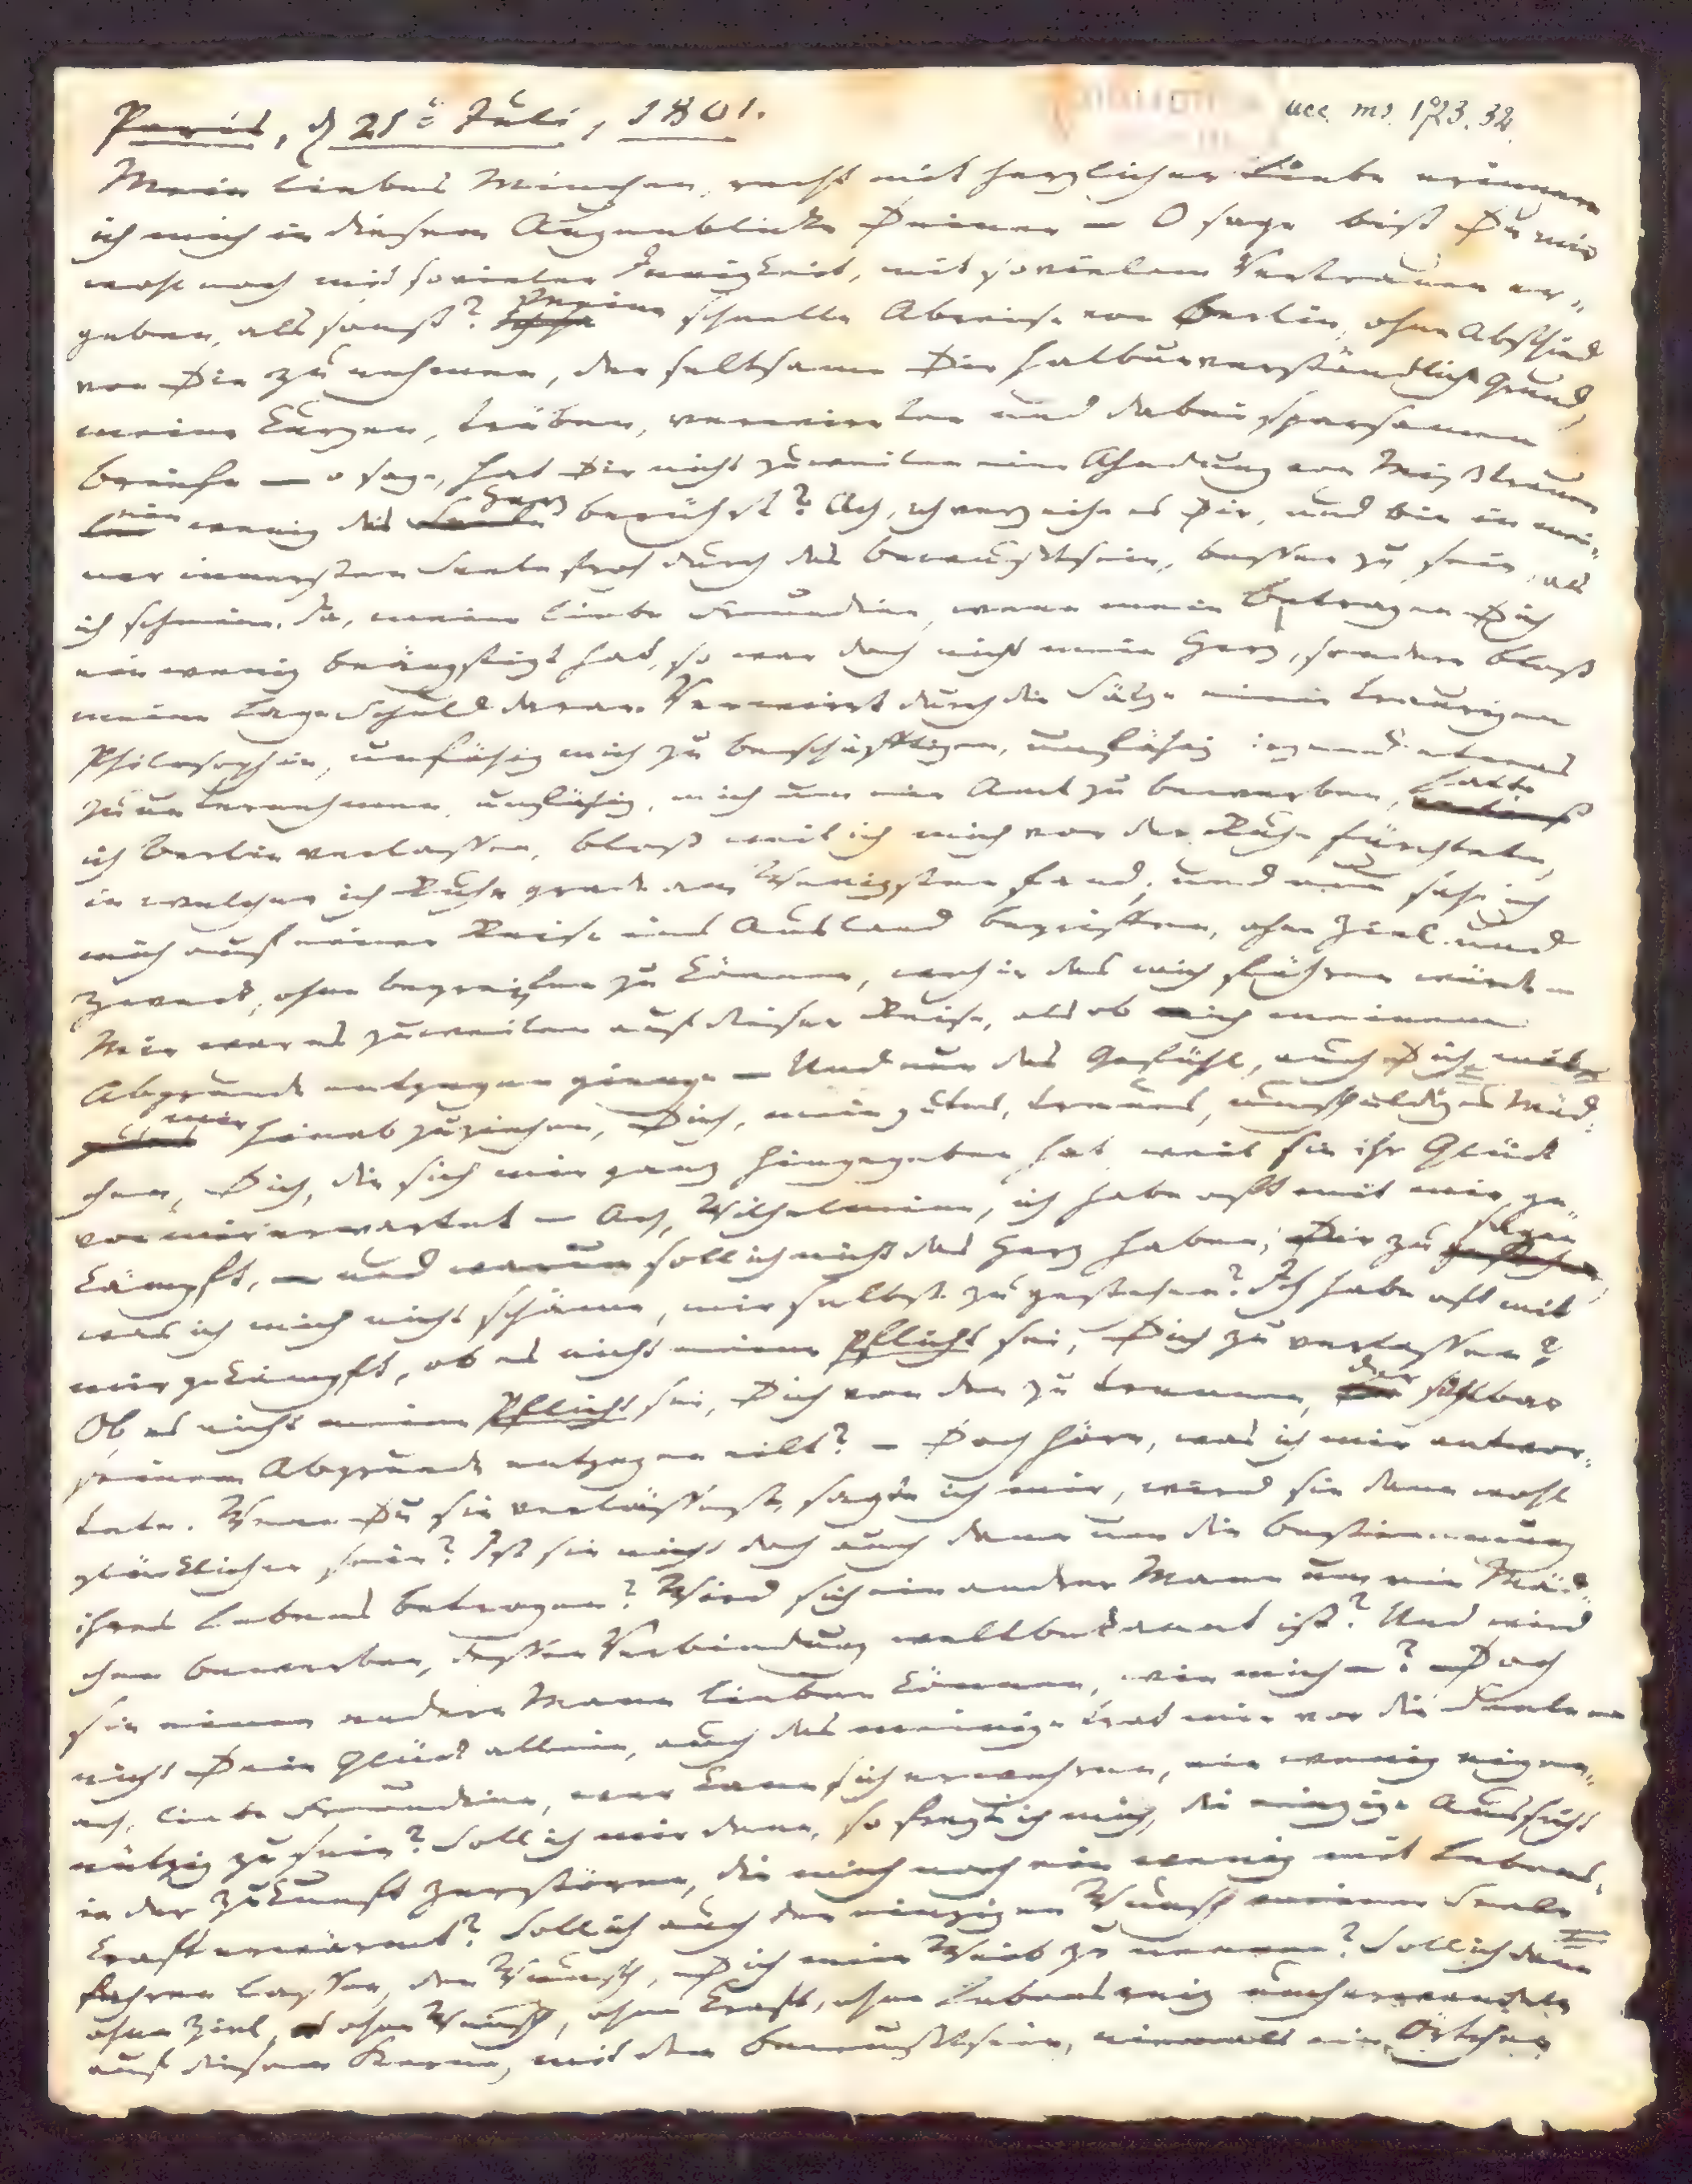 Paris, d 21t Juli, 1801.
acc. ms. 1923. 32
Mein liebes Minchen, recht mit herzlicher Liebe erinnere
ich mich in diesem Augenblicke Deiner — O sage bist Du mir
wohl noch mit sovieler Innigkeit, mit sovielem Vertrauen er-
geben, als sonst? Meine schnelle Abreise von Berlin, ohne Abschied
von Dir zu nehmen, der seltsame Dir halbunverständliche Grund,
meine kurzen, trüben, verwirrten und dabei sparsamen
Briefe — o sage, hat Dir nicht zuweilen eine Ahndung von Mißtrauen
ein wenig das Herz berührt? Ach, ich verzeihe es Dir, und bin in mei-
ner innersten Seele froh durch das Bewußtsein, besser zu sein, als
ich scheine. Ja, meine liebe Freundinn, wenn mein Betragen Dich
ein wenig beängstigt hat, so war doch nicht mein Herz, sondern bloß
meine Lage Schuld daran. Verwirrt durch die Sätze einer traurigen
Philosophie, unfähig mich zu beschäfftigen, unfähig irgend etwas
zu unternehmen, unfähig, mich um ein Amt zu bewerben, hatte
ich Berlin verlassen, bloß weil ich mich vor der Ruhe fürchtete,
in welcher ich Ruhe grade am Wenigsten fand; und nun sahe ich
mich auf einer Reise ins Ausland begriffen, ohne Ziel und
Zweck, ohne begreifen zu können, wohin das mich führen würde —
Mir war es zuweilen auf dieser Reise, als ob ich meinem
Abgrunde entgegen gienge — Und nun das Gefühl, auch Dich mit
mir hinabzuziehen, Dich, mein gutes, treues, unschuldiges Mäd-
chen, Dich, die sich mir ganz hingegeben hat, weil sie ihr Glück
von mir erwartet — Ach, Wilhelmine, ich habe oft mit mir ge-
kämpft, — und warum soll ich nicht das Herz haben, Dir zu sagen,
was ich mich nicht schäme, mir selbst zu gestehen? Ich habe oft mit
mir gekämpft, ob es nicht meine Pflicht sei, Dich zu verlassen?
Ob es nicht meine Pflicht sei, Dich von dem zu trennen, der sichtbar
seinem Abgrunde entgegen eilt? — Doch höre, was ich mir antwor-
tete. Wenn Du sie verlässest, sagte ich mir, wird sie dann wohl
glücklicher sein? Ist sie nicht doch auch dann um die Bestimmung
ihres Lebens betrogen? Wird sich ein andrer Mann um ein Mäd-
chen bewerben, dessen Verbindung weltbekannt ist? Und wird
sie einen andern Mann lieben können, wie mich —? Doch
nicht Dein Glück allein, auch das meinige trat mir vor die Seele —
ach, liebe Freundinn, wer kann sich erwehren, ein wenig eigen-
nützig zu sein? Soll ich mir denn, so fragte ich mich, die einzige Aussicht
in der Zukunft zerstören, die mich noch ein wenig mit Lebens-
kraft erwärmt? Soll ich auch den einzigen Wunsch meiner Seele
fahren lassen, den Wunsch, Dich mein Weib zu nennen? Soll ich denn
ohne Ziel, ohne Wunsch, ohne Kraft, ohne Lebensreiz umherwandeln
auf diesem Sterne, mit dem Bewußtsein, niemals ein Örtchen